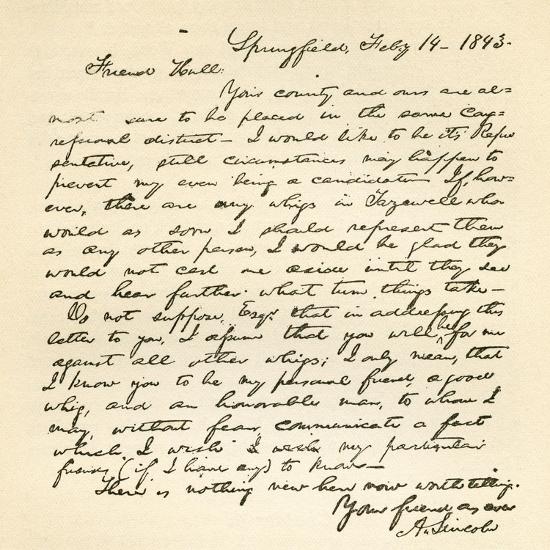 Springfield, Feby 14 - 1843.
Friend Hull:
Your county and ours are al=
most sure to be placed in the same Con=
gressional district - I would like to be its Repre
sentative, still circumstances may happen to
prevent my even being a candidate - If, how=
ever, there are any whigs in Tazewell who
would as soon I should represent them
as any other person, I would be glad they
would not cast me aside until they see
and hear further what turn things take -
Do not suppose, Esqr. that in addressing this
letter to you, I assume that you will be for me
against all other whigs; I only mean, that
I know you to be my personal friend, a good
whig, and an honorable man, to whom I
may, without fear, communicate a fact
which I wish I wish my particular
friends (if I have any) to know -
There is nothing new here now worth telling.
Your friend as ever
A. Lincoln